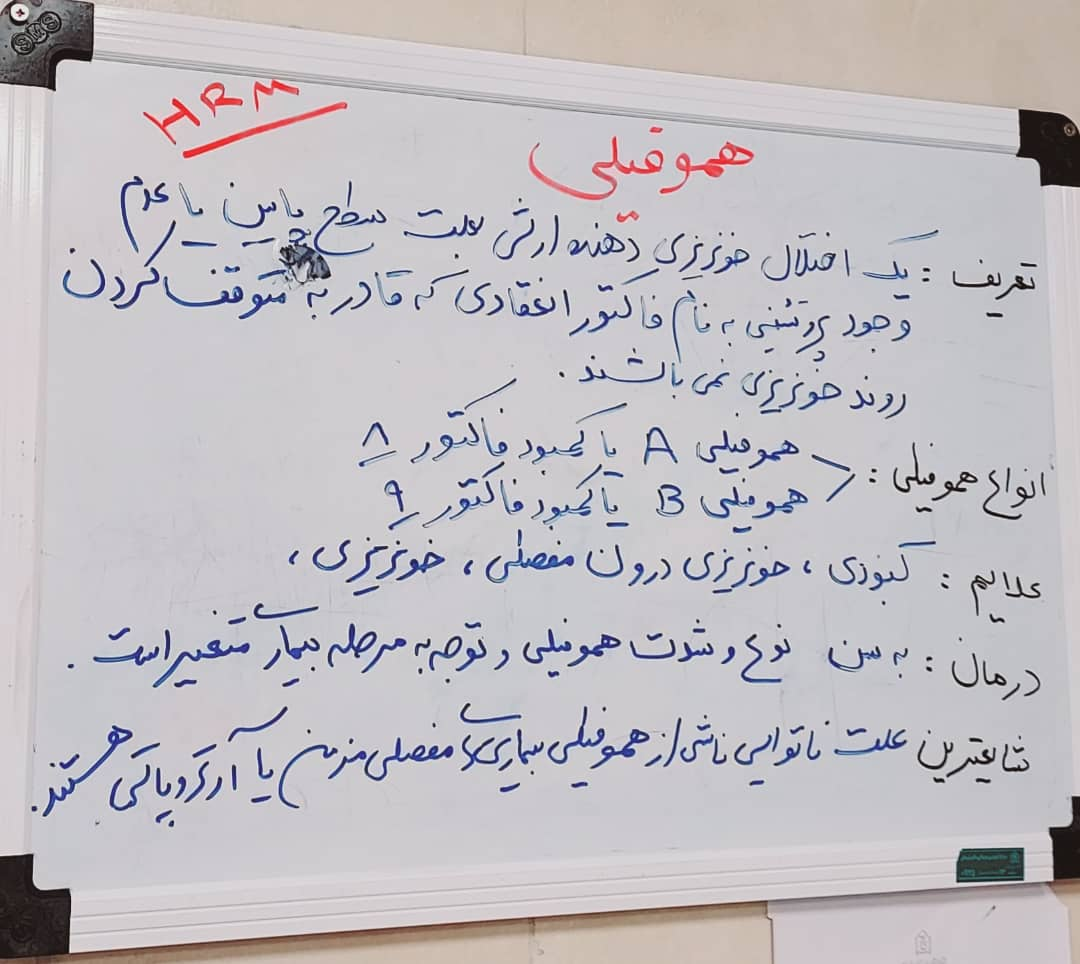 HRM
هموفیلی
تعریف : یک اختلال خونریزی دهنده ارثی بعلت سطح پایین یا عدم
وجود پروتئینی به نام فاکتور انعقادی که قادر به متوقف کردن
روند خونریزی نمی باشند .
انواع هموفیلی : هموفیلی A یا کمبود فاکتور ۸
هموفیلی B یا کمبود فاکتور ۹
علایم : کبودی ، خونریزی درون مفصلی ، خونریزی ،
درمان : به سن نوع و شدت هموفیلی و توجه به مرحله بیماری متغیر است .
شایعترین علت ناتوانی ناشی از هموفیلی بیماریهای مفصلی مزمن یا آرتروپاتی هستند .